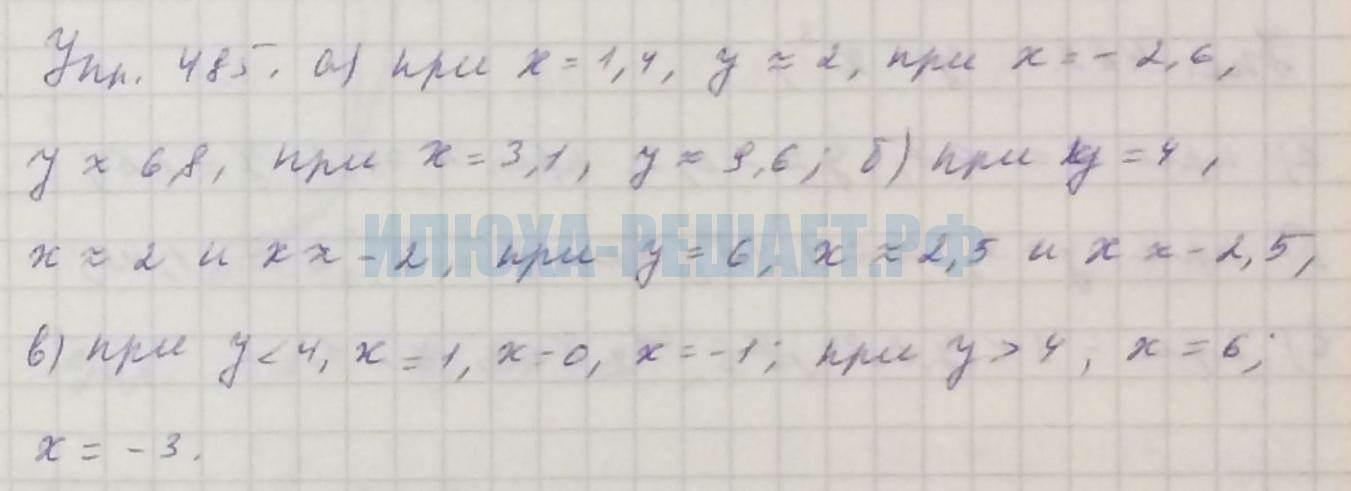 Упр. 485. а) при x = 1,4, y ≈ 2, при x = - 2,6,
y ≈ 6,8, при x = 3,1, y ≈ 9,6; б) при y = 4,
ИЛЮХА-РЕШАЕТ.РФ
x ≈ 2 и x ≈ - 2, при y = 6, x ≈ 2,5 и x ≈ - 2,5,
в) при y < 4, x = 1, x = 0, x = -1; при y > 4, x = 6;
x = - 3.